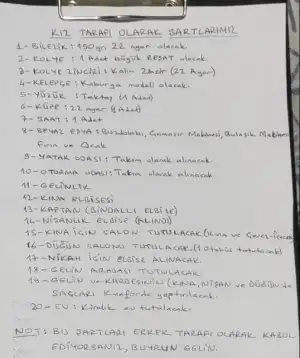 KIZ TARAFI OLARAK ŞARTLARIMIZ
1- BİLEZİK : 150gr 22 ayar olacak.
2- KOLYE : 1 Adet büyük REŞAT olacak.
3- KOLYE ZİNCİRİ : Kalın Zincir (22 Ayar)
4- KELEPÇE : Kaburga modeli olacak.
5- YÜZÜK : Tektaş (1 Adet)
6- KÜPE : 22 ayar (1 Adet)
7- SAAT : 1 Adet
8- BEYAZ EŞYA : Buzdolabı, Çamaşır Makinesi, Bulaşık Makinesi
Fırın ve Ocak
9- YATAK ODASI : Takım olarak alınacak
10- OTURMA ODASI : Takım olarak alınacak
11- GELİNLİK
12- KINA ELBİSESİ
13- KAFTAN (BİNDALLI ELBİSE)
14- NİŞANLIK ELBİSE (ALINDI)
15- KINA İÇİN SALON TUTULACAK
16- DÜĞÜN SALONU TUTULACAK (1 Otobüs tutulacak)
17- NİKAH İÇİN ELBİSE ALINACAK
18- GELİN ARABASI TUTULACAK
19- GELİN ve KARDEŞİNİN (KINA, NİŞAN ve DÜĞÜN'de
SAÇLARI Kuaförde yaptırılacak
20- EV : Kiralık ev tutulacak
NOT : BİZ ŞARTLARI ERKEK TARAFI OLARAK KABUL
EDİYORSANIZ, BUYRUN GELİN.